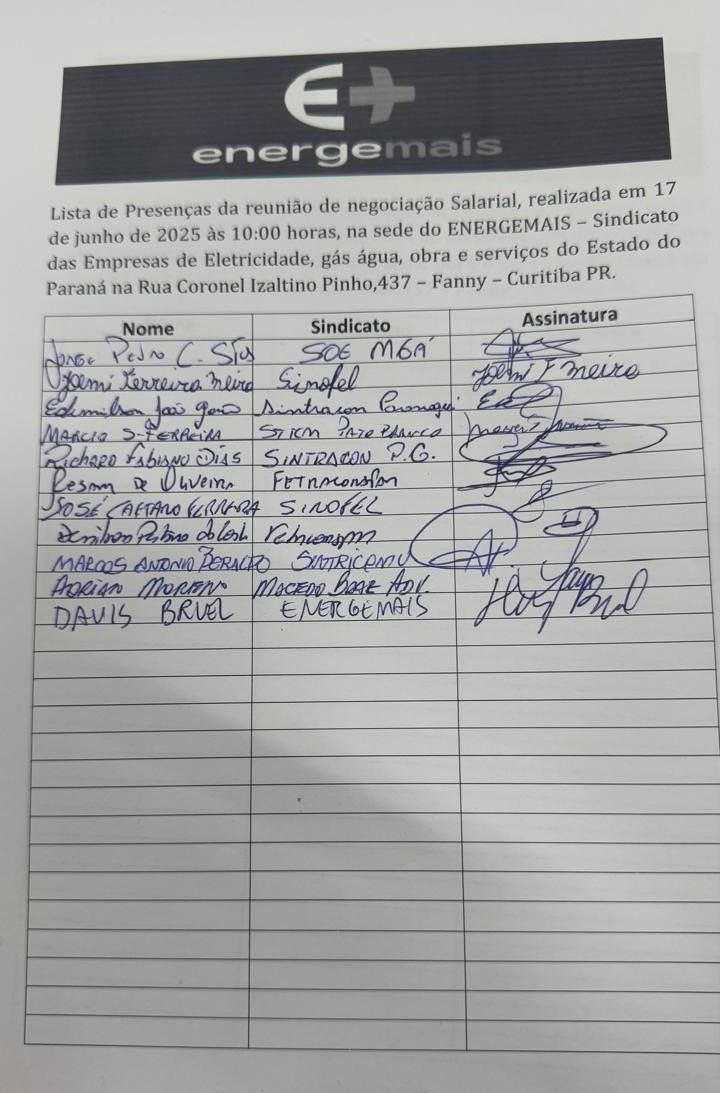 E+
energemais
Lista de Presenças da reunião de negociação Salarial, realizada em 17
de junho de 2025 às 10:00 horas, na sede do ENERGEMAIS – Sindicato
das Empresas de Eletricidade, gás água, obra e serviços do Estado do
Paraná na Rua Coronel Izaltino Pinho,437 – Fanny – Curitiba PR.
Nome Sindicato Assinatura
Pedro C. SOE MGÁ
Ferreira Sinofel
Edmilson João Sintracon
MARCIO S. FERREIRA STICM PATO BRANCO
Richard Fabiano Dias SINTRACON P.G.
DE Oliveira FETRACONSPAR
JOSÉ CAETANO FERREIRA SINOFEL
MARCOS ANTONIO BERALDO
ADRIAN MORENO MACEDO ADV.
DAVIS BRUEL ENERGEMAIS